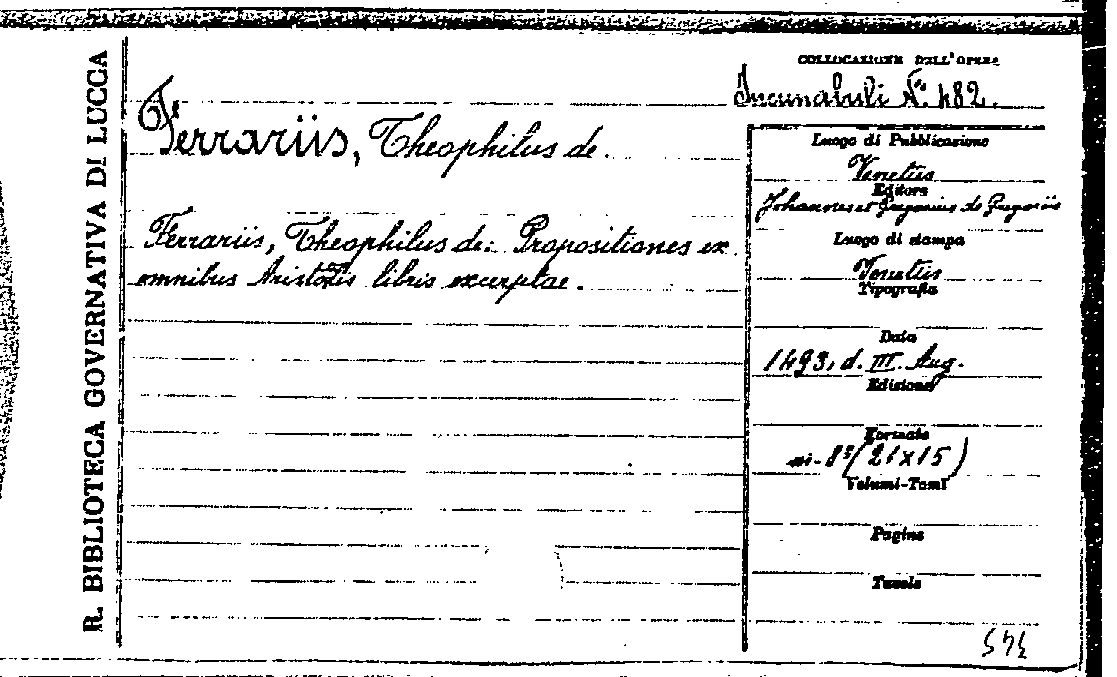 R. BIBLIOTECA GOVERNATIVA DI LUCCA
COLLOCAZIONE DELL'OPERA
Incunabuli N.° 482.
Ferrariis, Theophilus de.
Ferrariis, Theophilus de: Propositiones ex
omnibus Aristotelis libris excerptae.
Luogo di Pubblicazione
Venetiis
Editore
Johannes et Gregorius de Gregoriis
Luogo di stampa
Venetiis
Tipografia
Data
1493, d. III. Aug.
Edizione
Formato
in-8° (21x15)
Volumi-Tomi
Pagine
Tavole
345